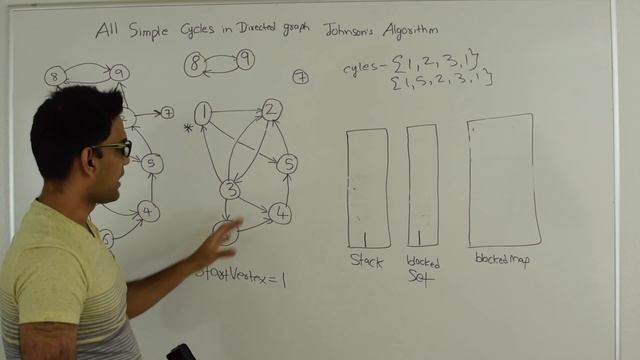 All Simple Cycles in Directed graph Johnson's Algorithm
8 9
7
cycles - {1, 2, 3, 1}
{1, 5, 2, 3, 1}
8 9
1 2
*
7
5
5
3
4
4
StartVertex = 1
Stack
blocked
Set
blocked map